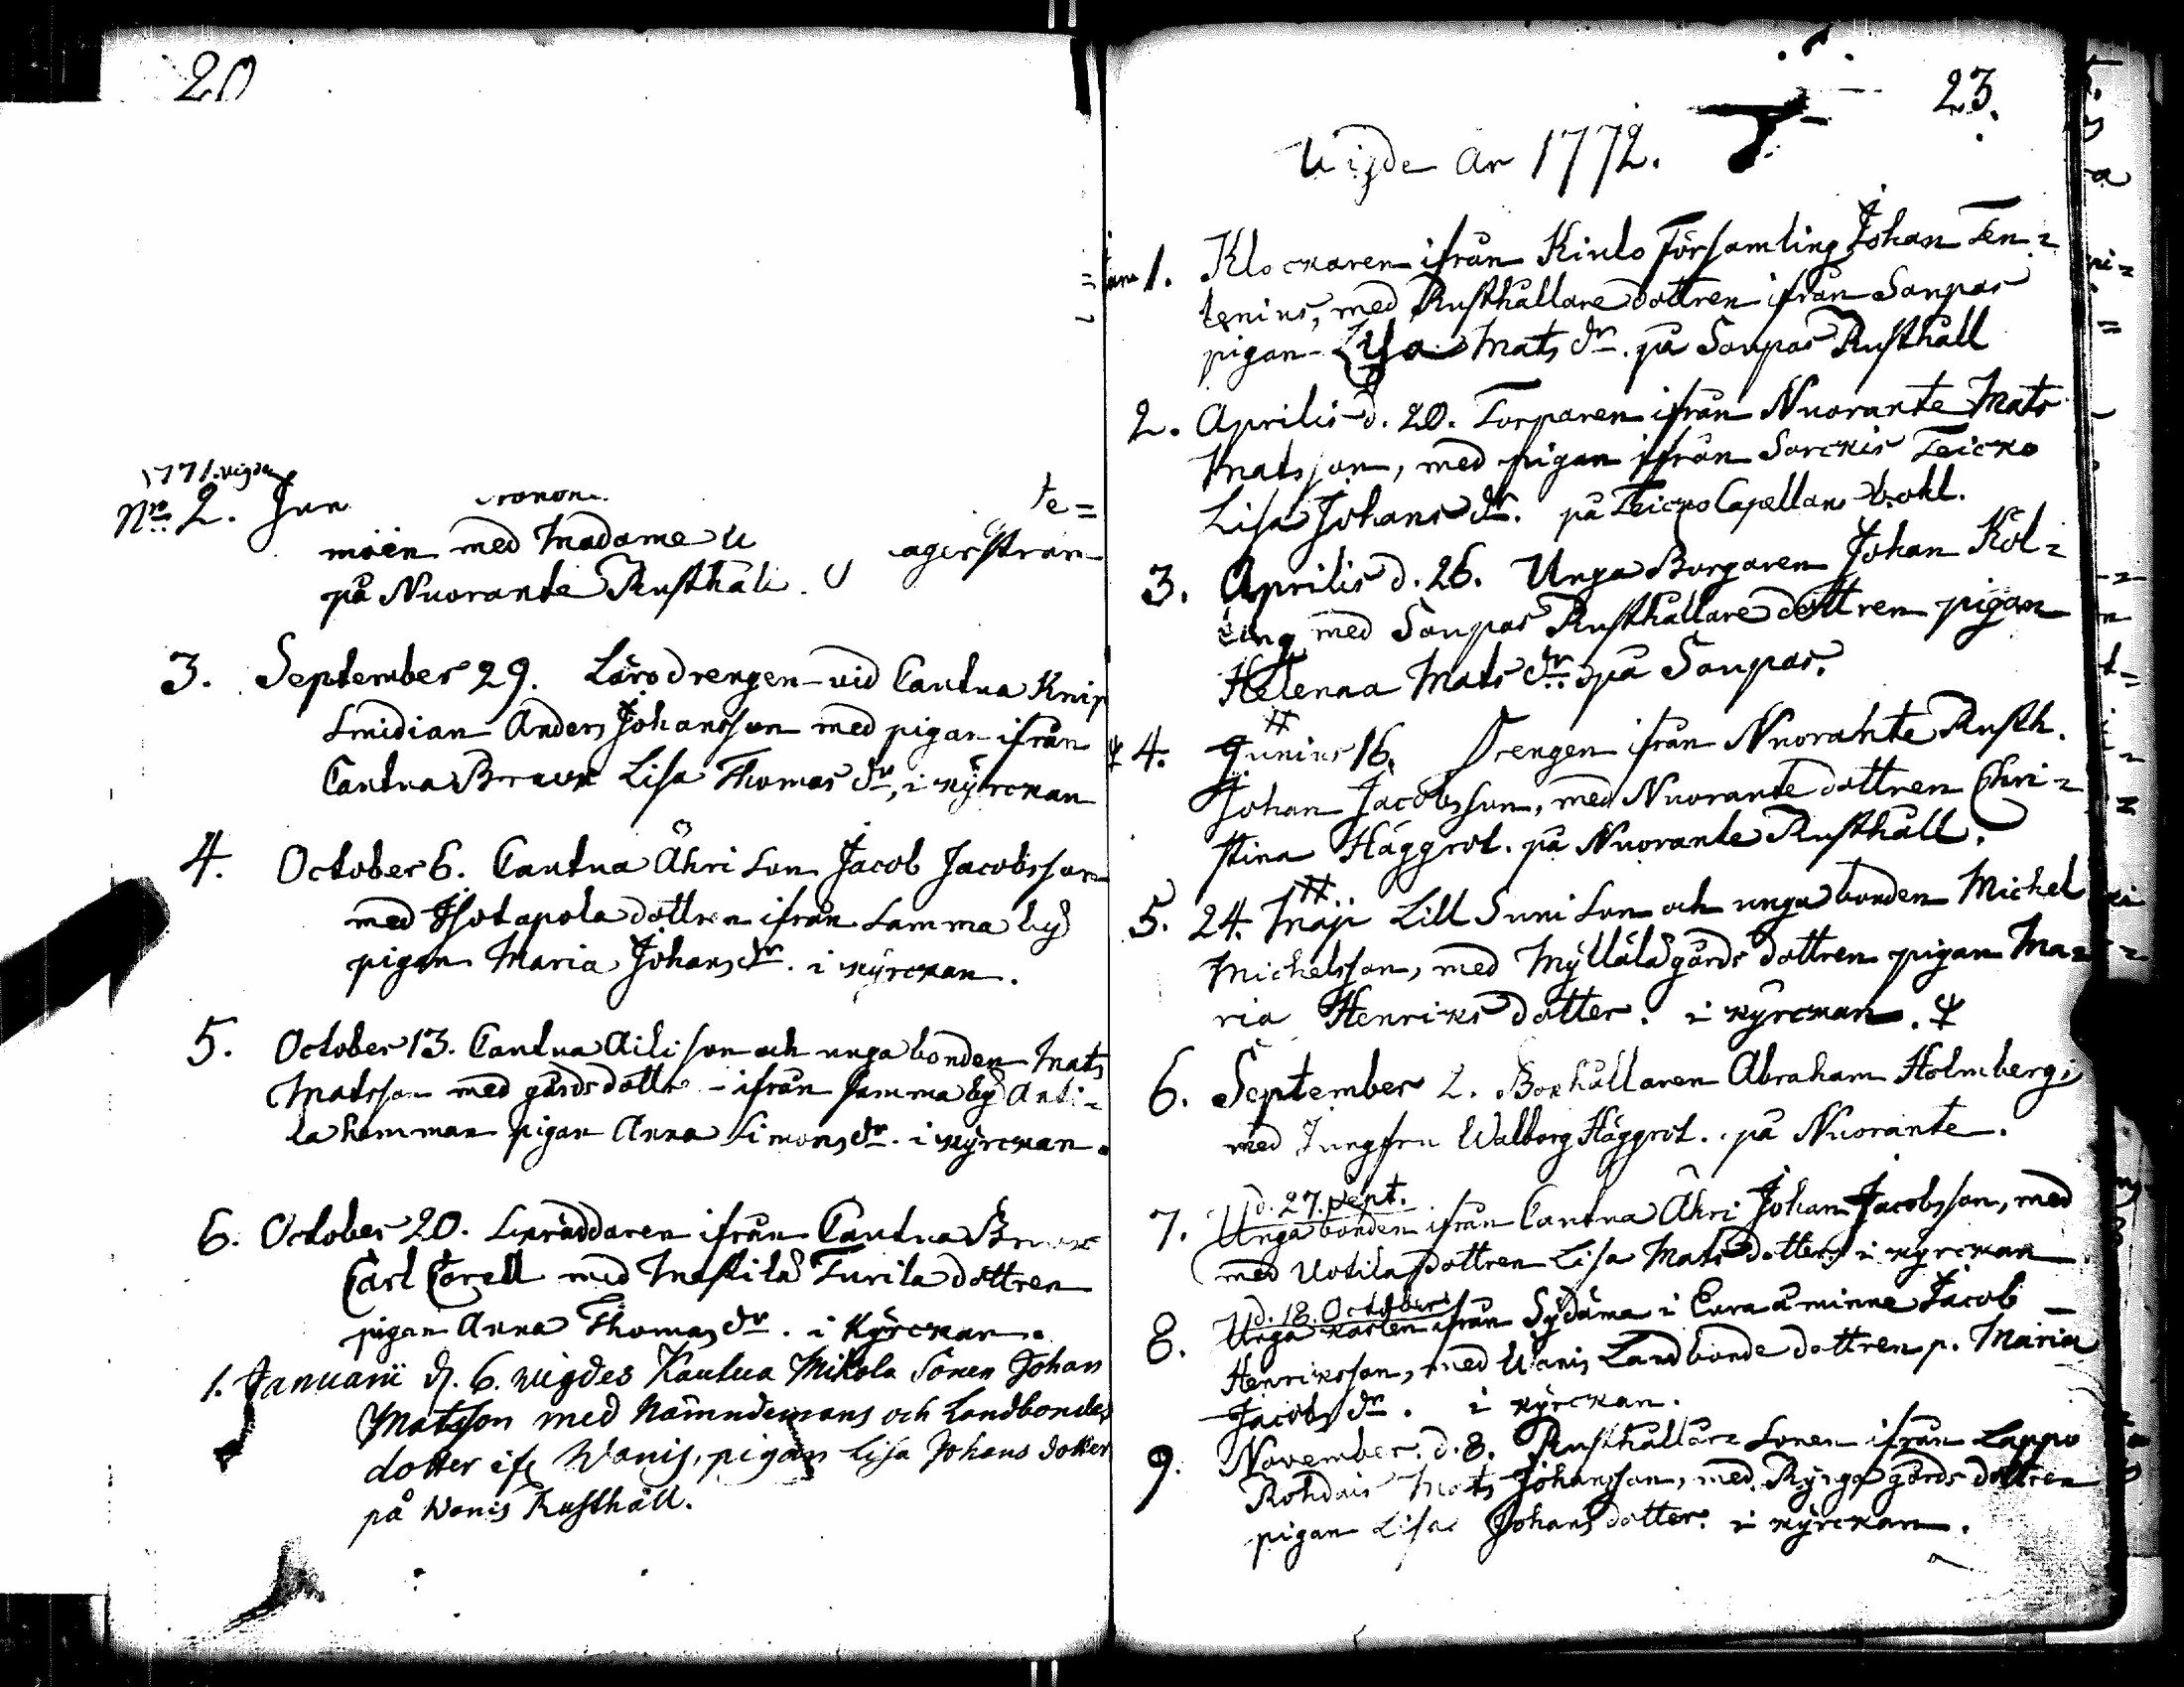 20
1771. vigde
No 2. Jun
te=
möen med Madame U agerstran
på Nuorante Rusthåll.
3. September 29. Lärodrengen vid Cautua Knip
smidian Anders Johansson med pigan ifrån
Cautua Bruck Lisa Thomas dr, i kÿrckan
4. October 6. Cautua Ähri son Jacob Jacobsson
med Isotapola dottren ifrån samma bÿ
pigan Maria Johans dr. i kÿrckan.
5. October 13. Cautua Aili son och unga bonden Mats
Matsson med gårds dottr ifrån samma bÿ Anti=
la hemman pigan Anna Simons dr. i kÿrckan.
6. October 20. Skräddaren ifrån Cautua Bruck
Carl Corell med Mastila Turila dottren
pigan Anna Thomas dr. i kÿrckan.
1. Januarii d. 6. wigdes Kautua Mikola Sonen Johan
Matsson med Nämndemans och Landbondes
dotter ifr Wanis, pigan Lisa Johans dotter
på Wanis Rusthåll.
23.
Vigde år 1772.
1. Klockaren ifrån Kiulo Församling Johan Ten=
tenius, med Rusthållare dottren ifrån Saupas
pigan Lisa Mats dr. på Saupas Rusthåll
2. Aprilis d. 20. Torparen ifrån Nuorante Mats
Matsson, med pigan ifrån Sorckis Teicko
Lisa Johans dr. på Teicko Capellans bohl.
3. Aprilis d. 26. Unga Borgaren Johan Köl=
ing med Saupas Rusthållare dottren pigan
Helenna Mats dr. på Saupas.
4. Junius 16. Drengen ifrån Nuorante Rusth.
Johan Jacobsson, med Nuorante dottren Chri=
stina Häggrot. på Nuorante Rusthåll.
5. 24. Maji Lill Suni son och unga bonden Michel
Michelsson, med Mÿllälä gårds dottren pigan Ma=
ria Henriks dotter. i kÿrckan.
6. September 2. Bokhållaren Abraham Holmberg
med Jungfru Walborg Häggrot. på Nuorante.
d. 27. Sept.
7. Unga bonden ifrån Cautua Ähri Johan Jacobsson, med
med Uotila dottren Lisa Mats dotter i kÿrckan
d. 18. October
8. Unga karlen ifrån Sÿdäma i Euraåminne Jacob
Henriksson, med Wanis Landbonde dottren p. Maria
Jacobs dr. i kÿrckan.
9. November. d. 8. Rusthållare sonen ifrån Lappo
Rohdais Mats Johansson, med Kÿngg gårds dottren
pigan Lisa Johans dotter. i kÿrckan.